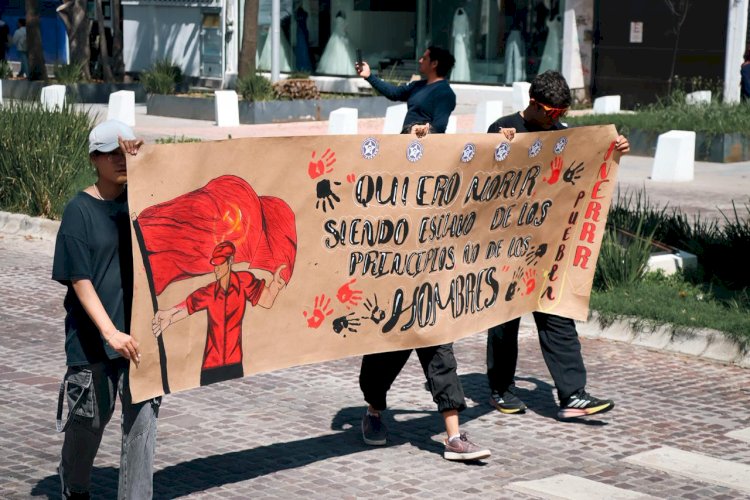 "QUIERO MORIR
SIENDO ESCLAVO DE LOS
PRINCIPIOS NO DE LOS
HOMBRES"
PUEBLA